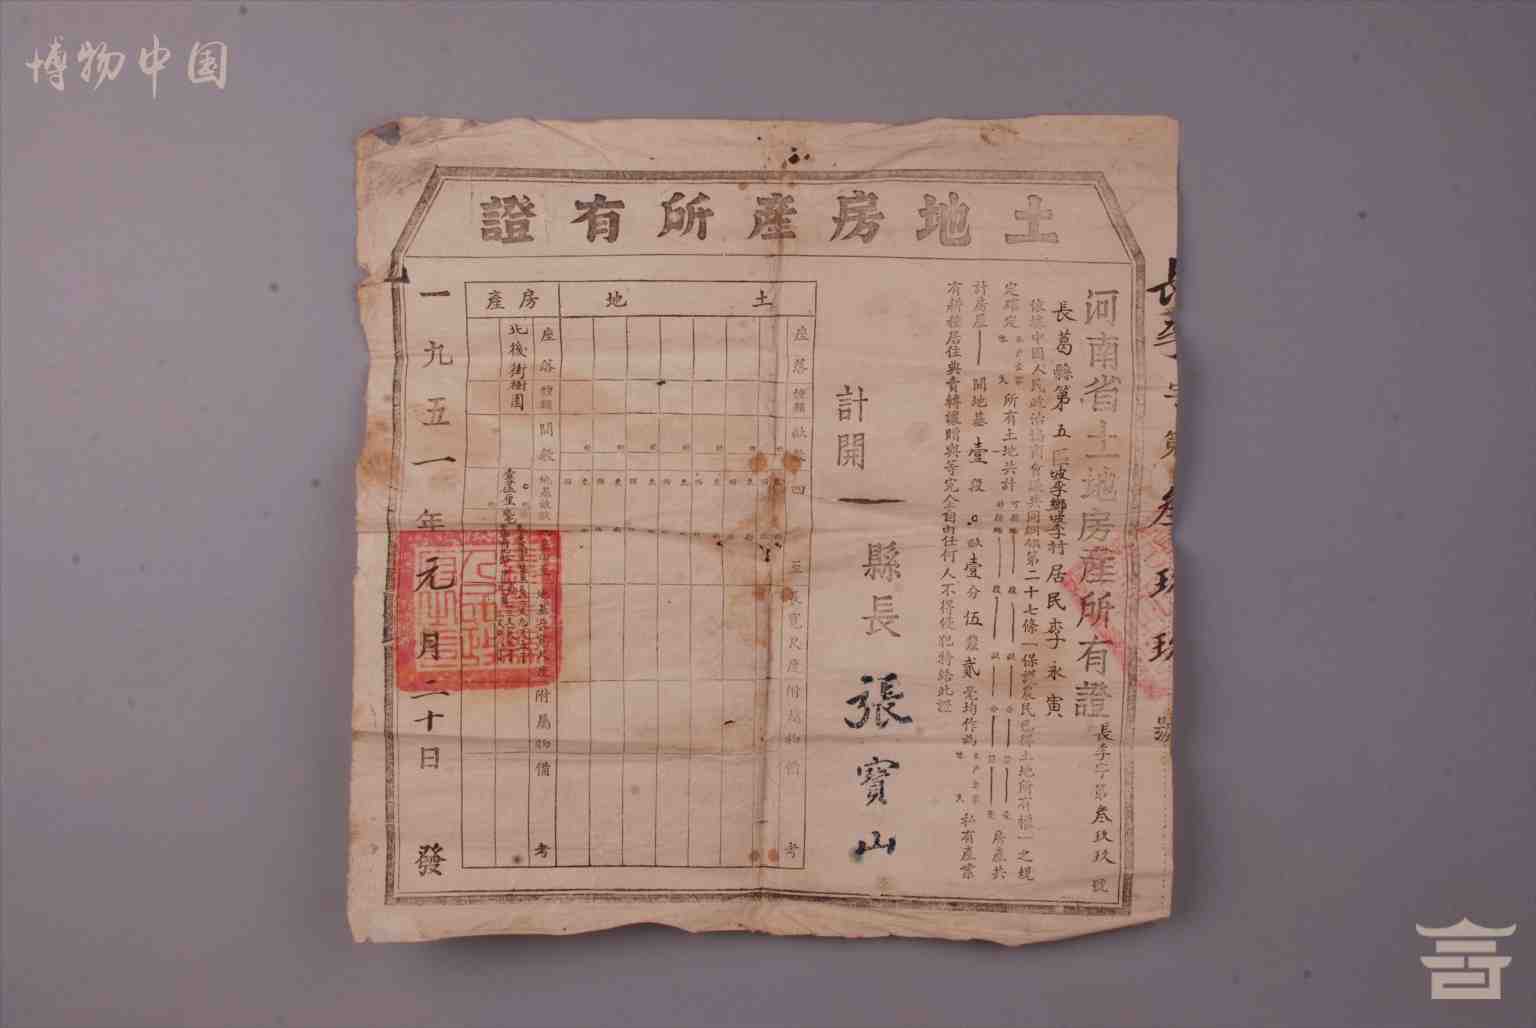 博物中国
土地房産所有證
河南省土地房産所有證
長李字第叁玖玖號
長葛縣第五區坡李鄉坡李村居民李永寅
依據中國人民政治協商會議共同綱領第二十七條「保護農民已得土地所有權」之規
定確定 所有土地共計 房產共
計房屋 間地基壹段 〇畝壹分伍釐貳毫均作為 私有產業
有耕種居住典賣轉讓贈與等完全自由任何人不得侵犯特給此證
計開
縣長 張寶山
土地
座落 種類 畝數 四至 長寬尺度 附屬物 備考
房產
座落 種類 間數 地基畝數 地基長寬尺度 附屬物 備考
北後街樹園
一九五一年元月二十日 發